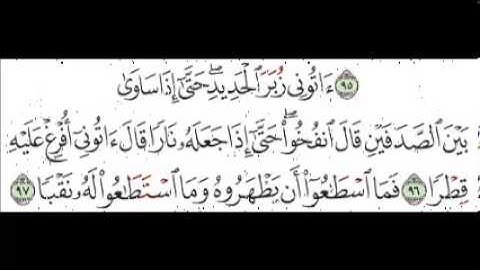 ٩٥ ءَاتُونِي زُبَرَ الْحَدِيدِ ۖ حَتَّىٰٓ إِذَا سَاوَىٰ
بَيْنَ الصَّدَفَيْنِ قَالَ انفُخُوا۟ ۖ حَتَّىٰٓ إِذَا جَعَلَهُۥ نَارًا قَالَ ءَاتُونِيٓ أُفْرِغْ عَلَيْهِ
قِطْرًا ٩٦ فَمَا اسْطَٰعُوٓا۟ أَن يَظْهَرُوهُ وَمَا اسْتَطَٰعُوا۟ لَهُۥ نَقْبًا ٩٧